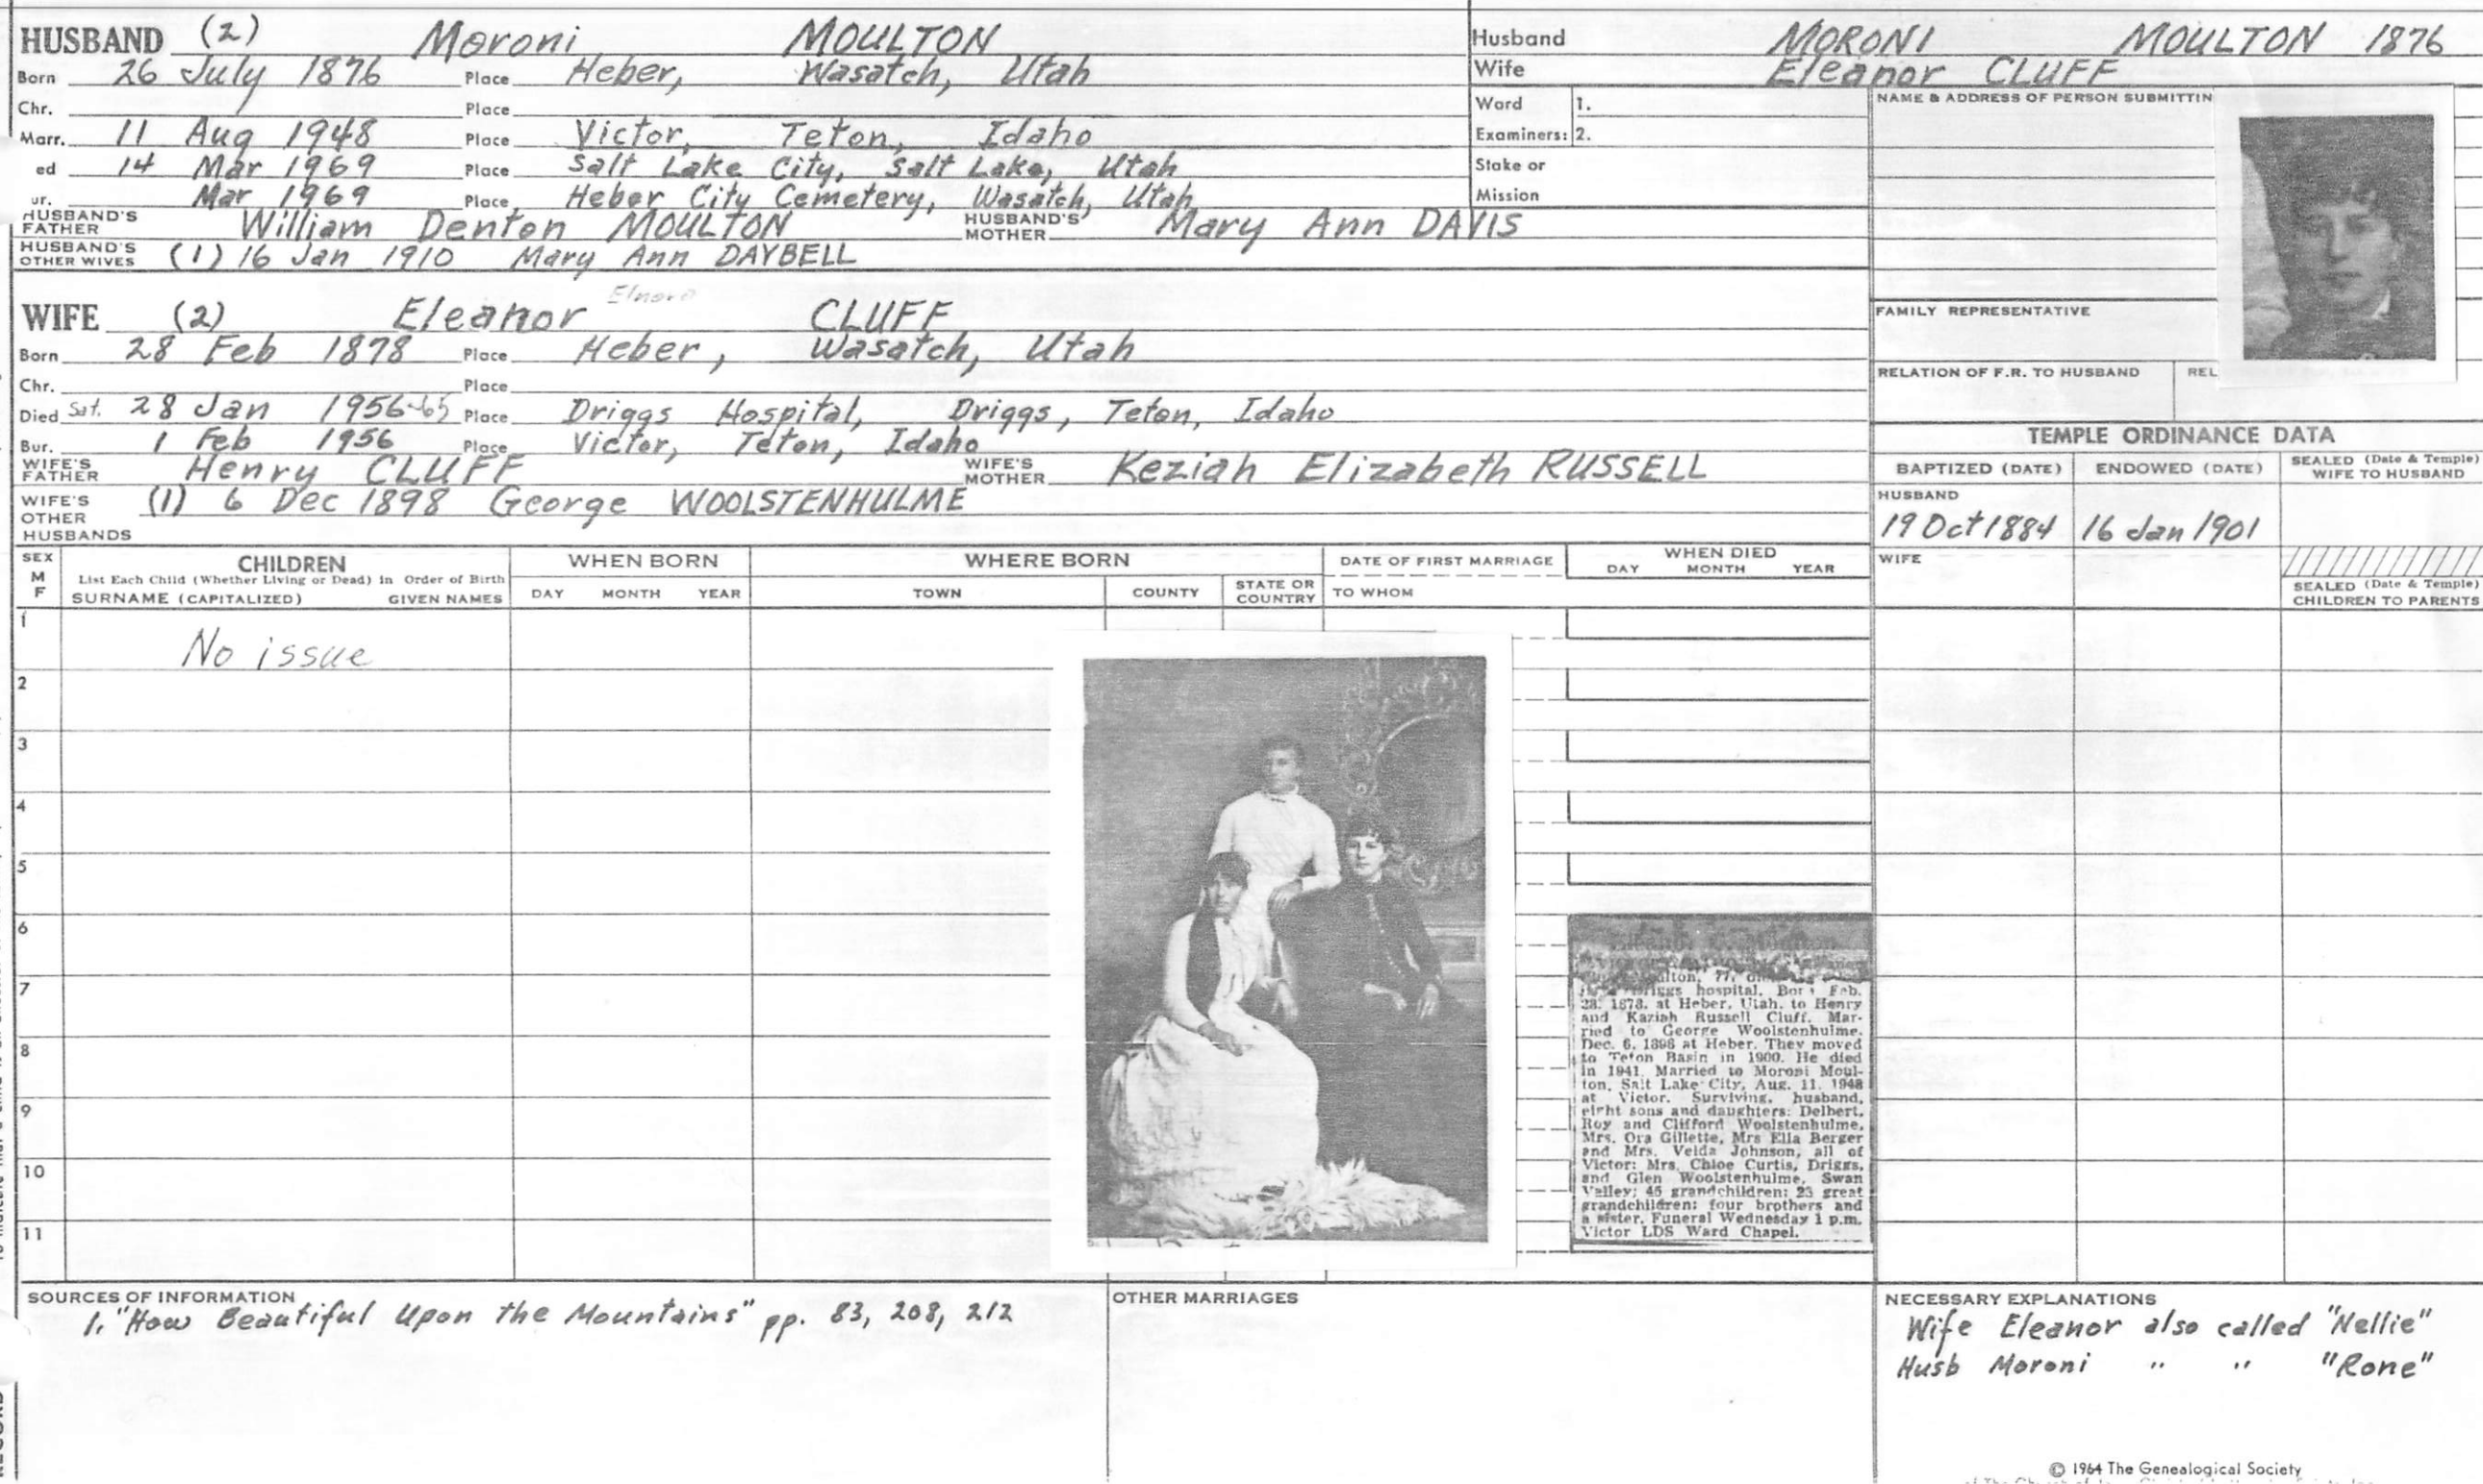 HUSBAND (2) Moroni MOULTON
Born 26 July 1876 Place Heber, Wasatch, Utah
Chr. Place
Marr. 11 Aug 1948 Place Victor, Teton, Idaho
ed 14 Mar 1969 Place Salt Lake City, Salt Lake, Utah
ur. Mar 1969 Place Heber City Cemetery, Wasatch, Utah
HUSBAND'S FATHER William Denton MOULTON HUSBAND'S MOTHER Mary Ann DAVIS
HUSBAND'S OTHER WIVES (1) 16 Jan 1910 Mary Ann DAYBELL
Elnora
WIFE (2) Eleanor CLUFF
Born 28 Feb 1878 Place Heber, Wasatch, Utah
Chr. Place
Died Sat. 28 Jan 1956 Place Driggs Hospital, Driggs, Teton, Idaho
Bur. 1 Feb 1956 Place Victor, Teton, Idaho
WIFE'S FATHER Henry CLUFF WIFE'S MOTHER Keziah Elizabeth RUSSELL
WIFE'S OTHER HUSBANDS (1) 6 Dec 1898 George WOOLSTENHULME
Husband MORONI MOULTON 1876
Wife Eleanor CLUFF
Ward 1.
Examiners: 2.
Stake or
Mission
NAME & ADDRESS OF PERSON SUBMITTIN
FAMILY REPRESENTATIVE
RELATION OF F.R. TO HUSBAND REL
TEMPLE ORDINANCE DATA
BAPTIZED (DATE) ENDOWED (DATE) SEALED (Date & Temple) WIFE TO HUSBAND
HUSBAND
19 Oct 1884 16 Jan 1901
WIFE
SEALED (Date & Temple) CHILDREN TO PARENTS
SEX M F
CHILDREN
List Each Child (Whether Living or Dead) in Order of Birth
SURNAME (CAPITALIZED) GIVEN NAMES
WHEN BORN
DAY MONTH YEAR
WHERE BORN
TOWN COUNTY STATE OR COUNTRY
DATE OF FIRST MARRIAGE
TO WHOM
WHEN DIED
DAY MONTH YEAR
1
No issue
2
3
4
5
6
7
8
9
10
11
Moulton
ulton, 77,
riggs hospital. Born Feb.
28, 1878, at Heber, Utah, to Henry
and Kaziah Russell Cluff. Mar-
ried to George Woolstenhulme,
Dec. 6, 1898 at Heber. They moved
to Teton Basin in 1900. He died
in 1941. Married to Moroni Moul-
ton, Salt Lake City, Aug. 11, 1948
at Victor. Surviving, husband,
eight sons and daughters: Delbert,
Roy and Clifford Woolstenhulme,
Mrs. Ora Gillette, Mrs Ella Berger
and Mrs. Velda Johnson, all of
Victor; Mrs. Chloe Curtis, Driggs,
and Glen Woolstenhulme, Swan
Valley; 45 grandchildren; 23 great
grandchildren; four brothers and
a sister. Funeral Wednesday 1 p.m.
Victor LDS Ward Chapel.
SOURCES OF INFORMATION
1. "How Beautiful Upon the Mountains" pp. 83, 208, 212
OTHER MARRIAGES
NECESSARY EXPLANATIONS
Wife Eleanor also called "Nellie"
Husb Moroni " " "Rone"
© 1964 The Genealogical Society